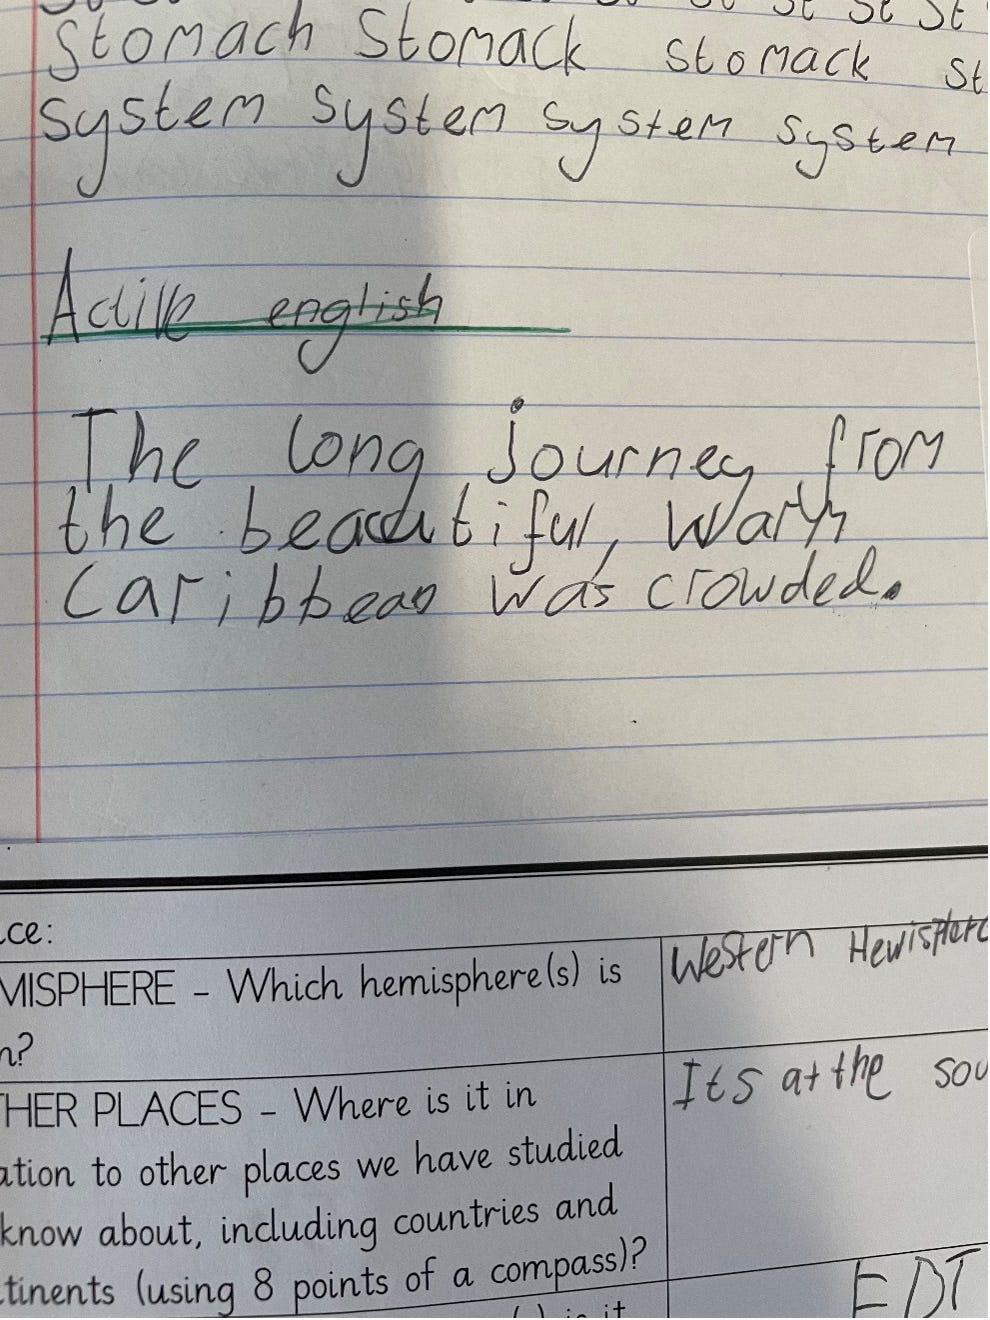 st st st
Stomach Stomack stomack st
System System system system
Active english
The long journey from
the beautiful, warm
Caribbean was crowded.
ce:
MISPHERE - Which hemisphere(s) is Western Hewisphere
n?
THER PLACES - Where is it in Its at the sou
ation to other places we have studied
know about, including countries and
tinents (using 8 points of a compass)? EDT
is it